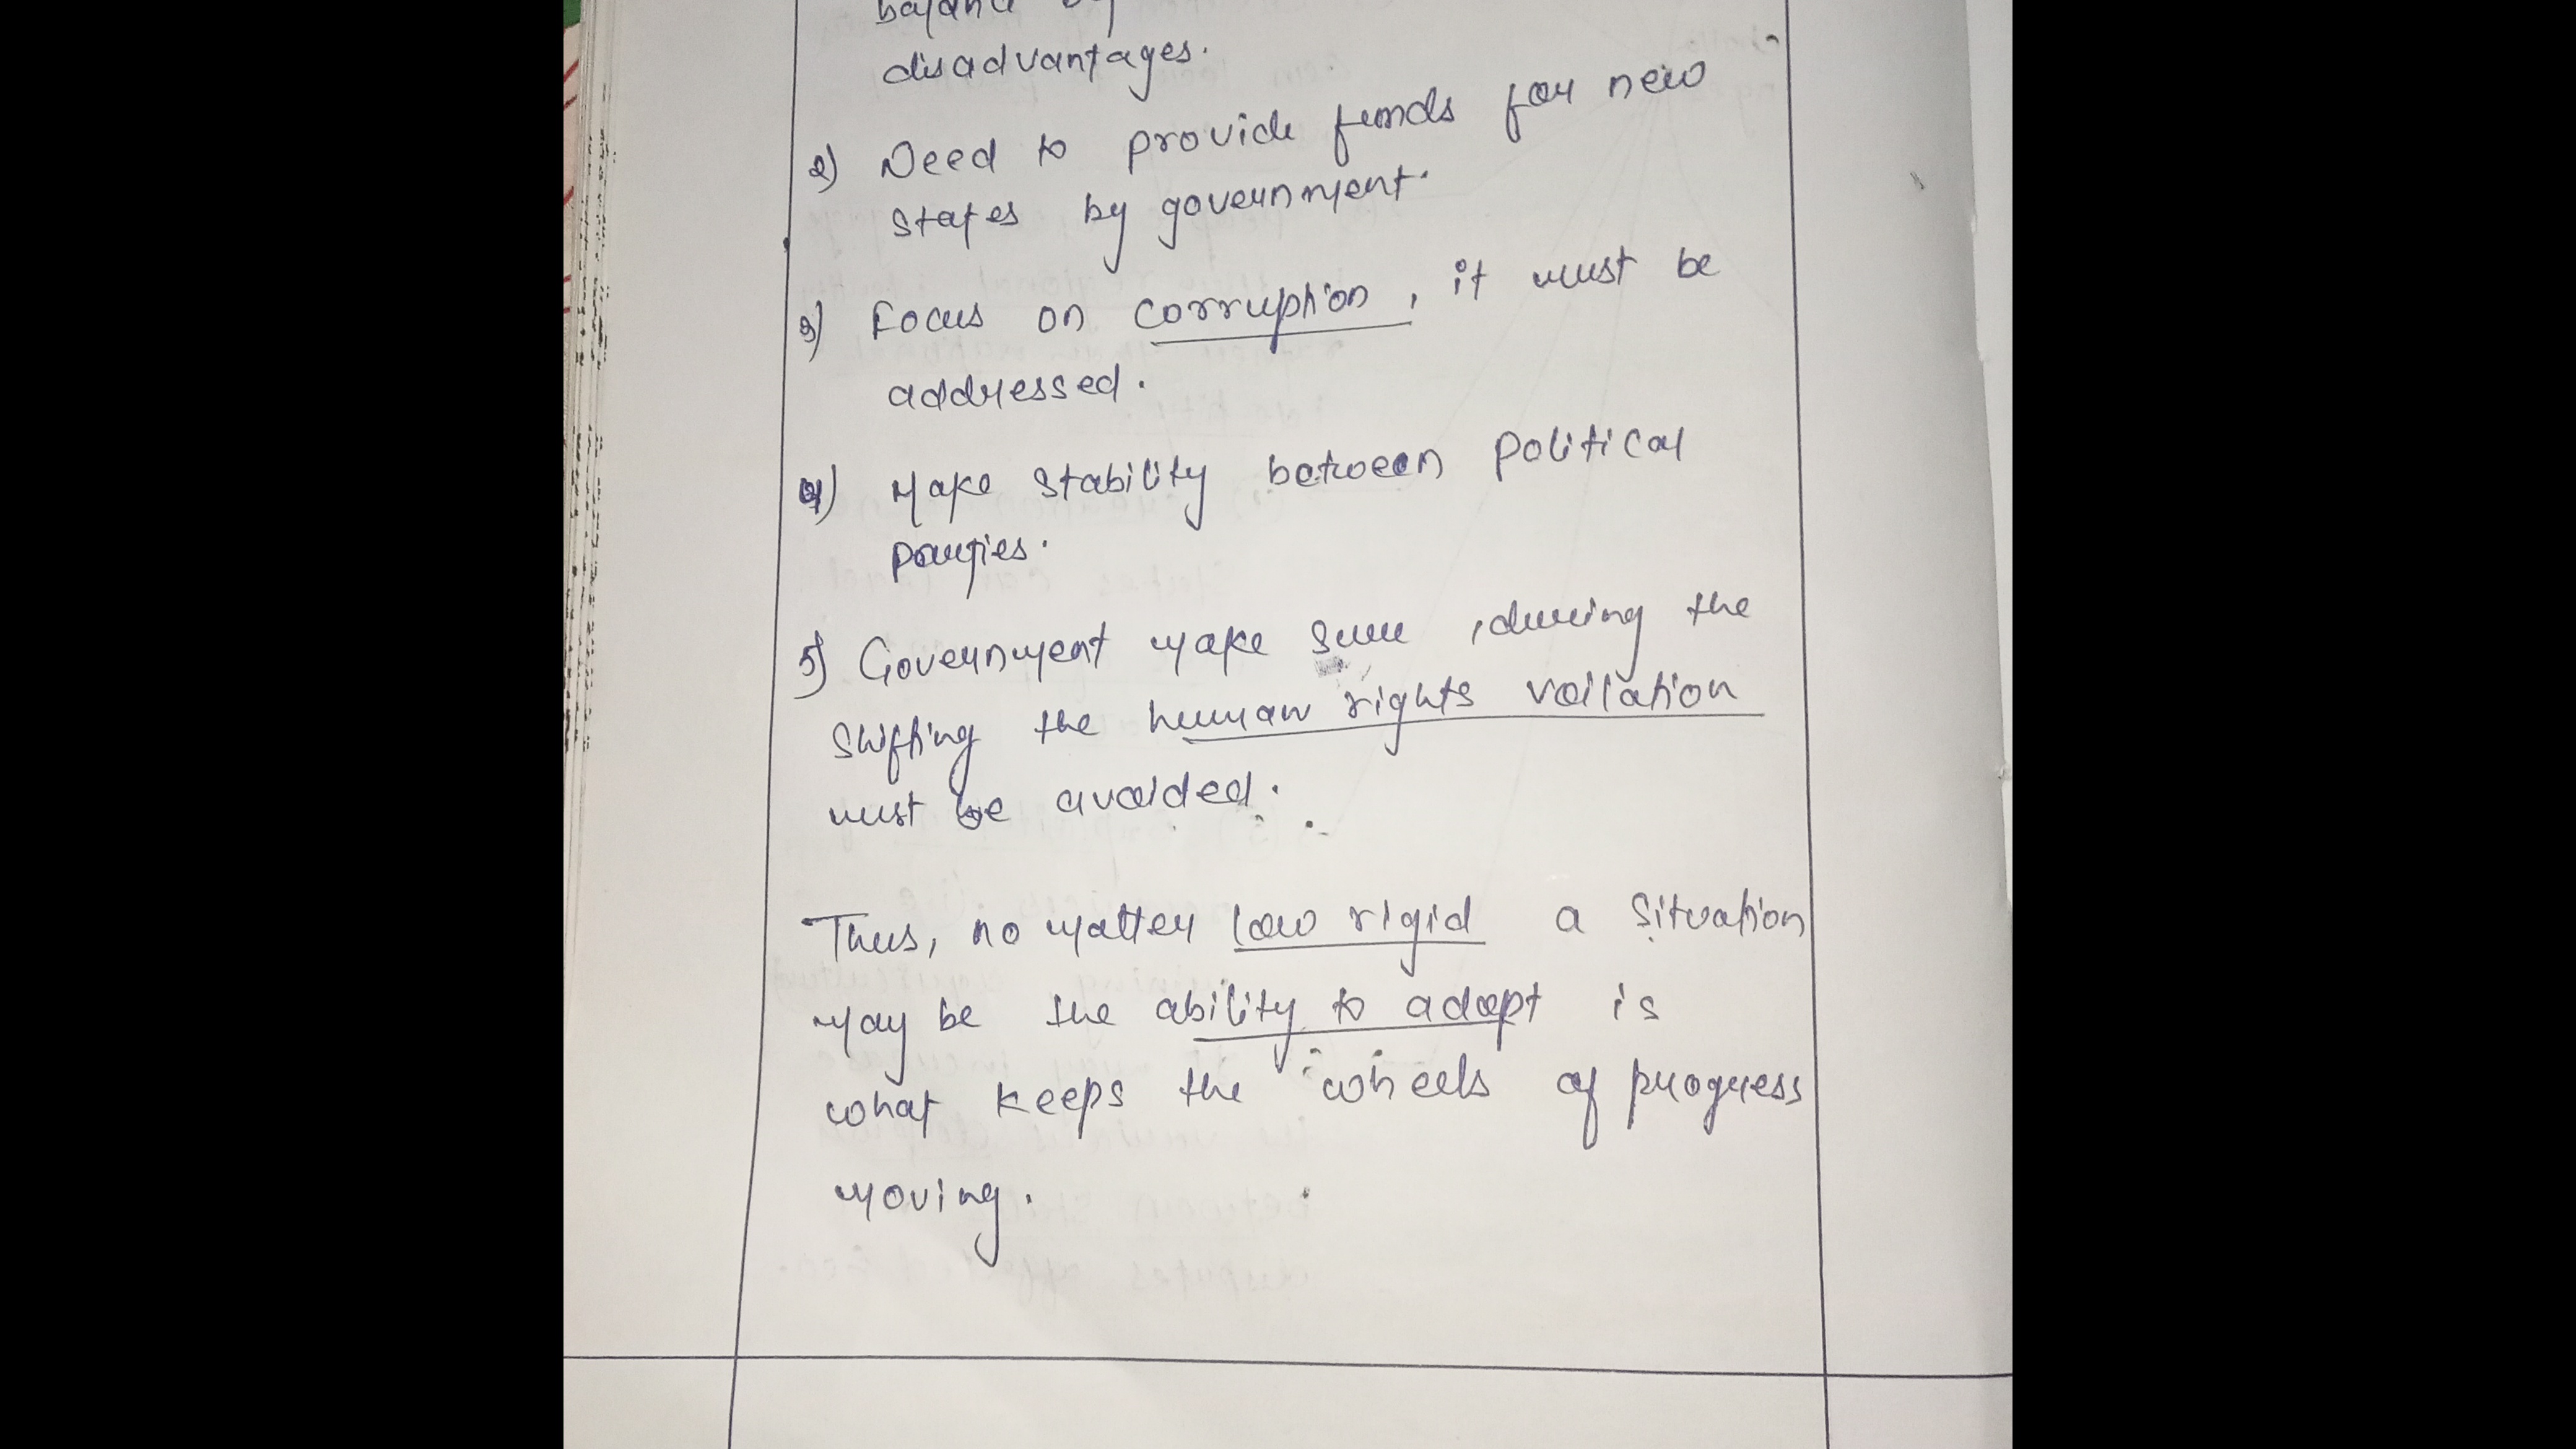 balance
disadvantages.
2) Need to provide funds for new
states by government.
3) Focus on corruption, it must be
addressed.
4) Make stability between political
parties.
5) Government make sure, during the
shifting the human rights voilation
must be avoided.
Thus, no matter low rigid a situation
may be the ability to adapt is
what keeps the wheels of progress
moving.